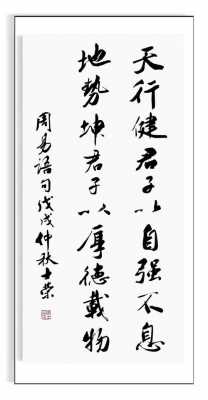 天行健君子以自强不息
地勢坤君子以厚德載物
周易語句戊戌仲秋士荣